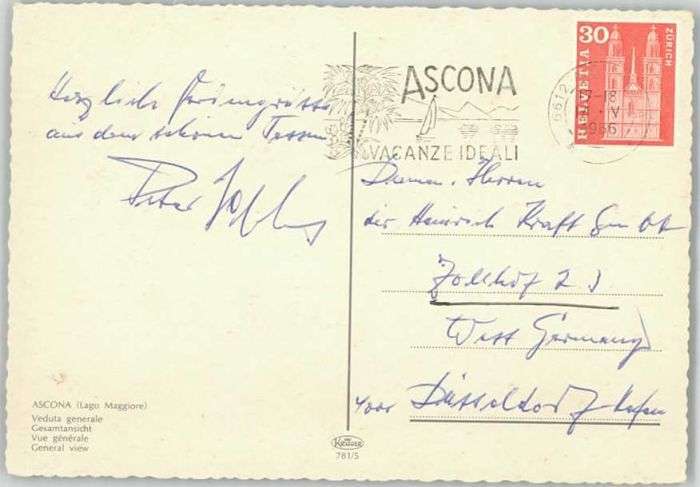 Herzliche Feriengrüsse
aus dem schönen Tessin
Peter
ASCONA (Lago Maggiore)
Veduta generale
Gesamtansicht
Vue générale
General view
781/S
ASCONA
VACANZE IDEALI
6612
-18
V
1966
HELVETIA
30
ZÜRICH
Damen u. Herren
der Heinrich Kraft GmbH
Zollhof
West Germany
Düsseldorf-Hafen